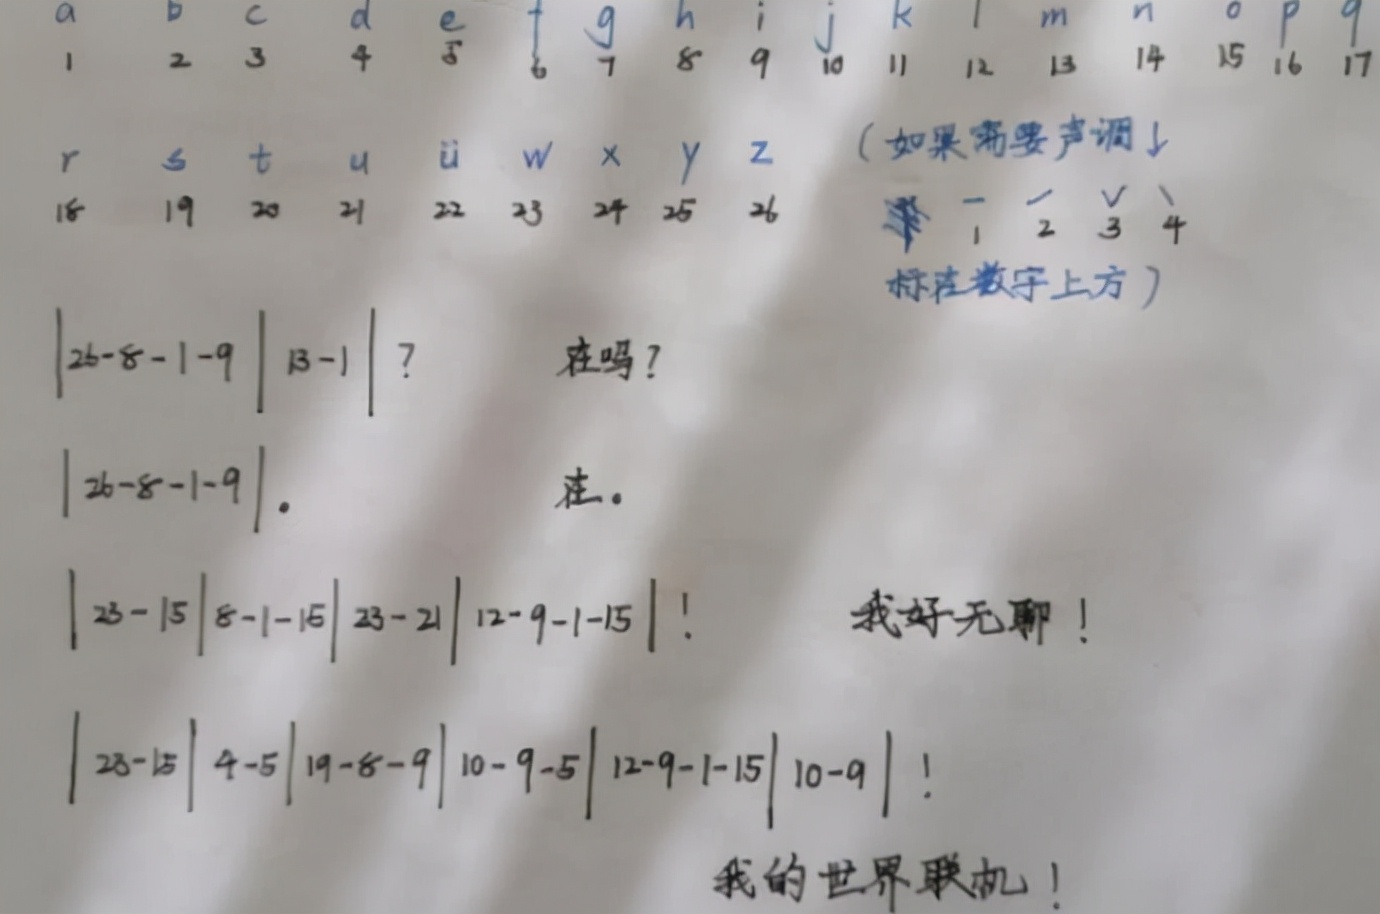 a b c d e f g h i j k l m n o p q
1 2 3 4 5 6 7 8 9 10 11 12 13 14 15 16 17
r s t u ü w x y z
18 19 20 21 22 23 24 25 26
(如果需要声调↓
ˉ ˊ ˇ ˋ
1 2 3 4
标在数字上方)
|26-8-1-9|13-1|? 在吗?
|26-8-1-9|。 在。
|23-15|8-1-15|23-21|12-9-1-15|! 我好无聊!
|23-15|4-5|19-8-9|10-9-5|12-9-1-15|10-9|!
我的世界联机!